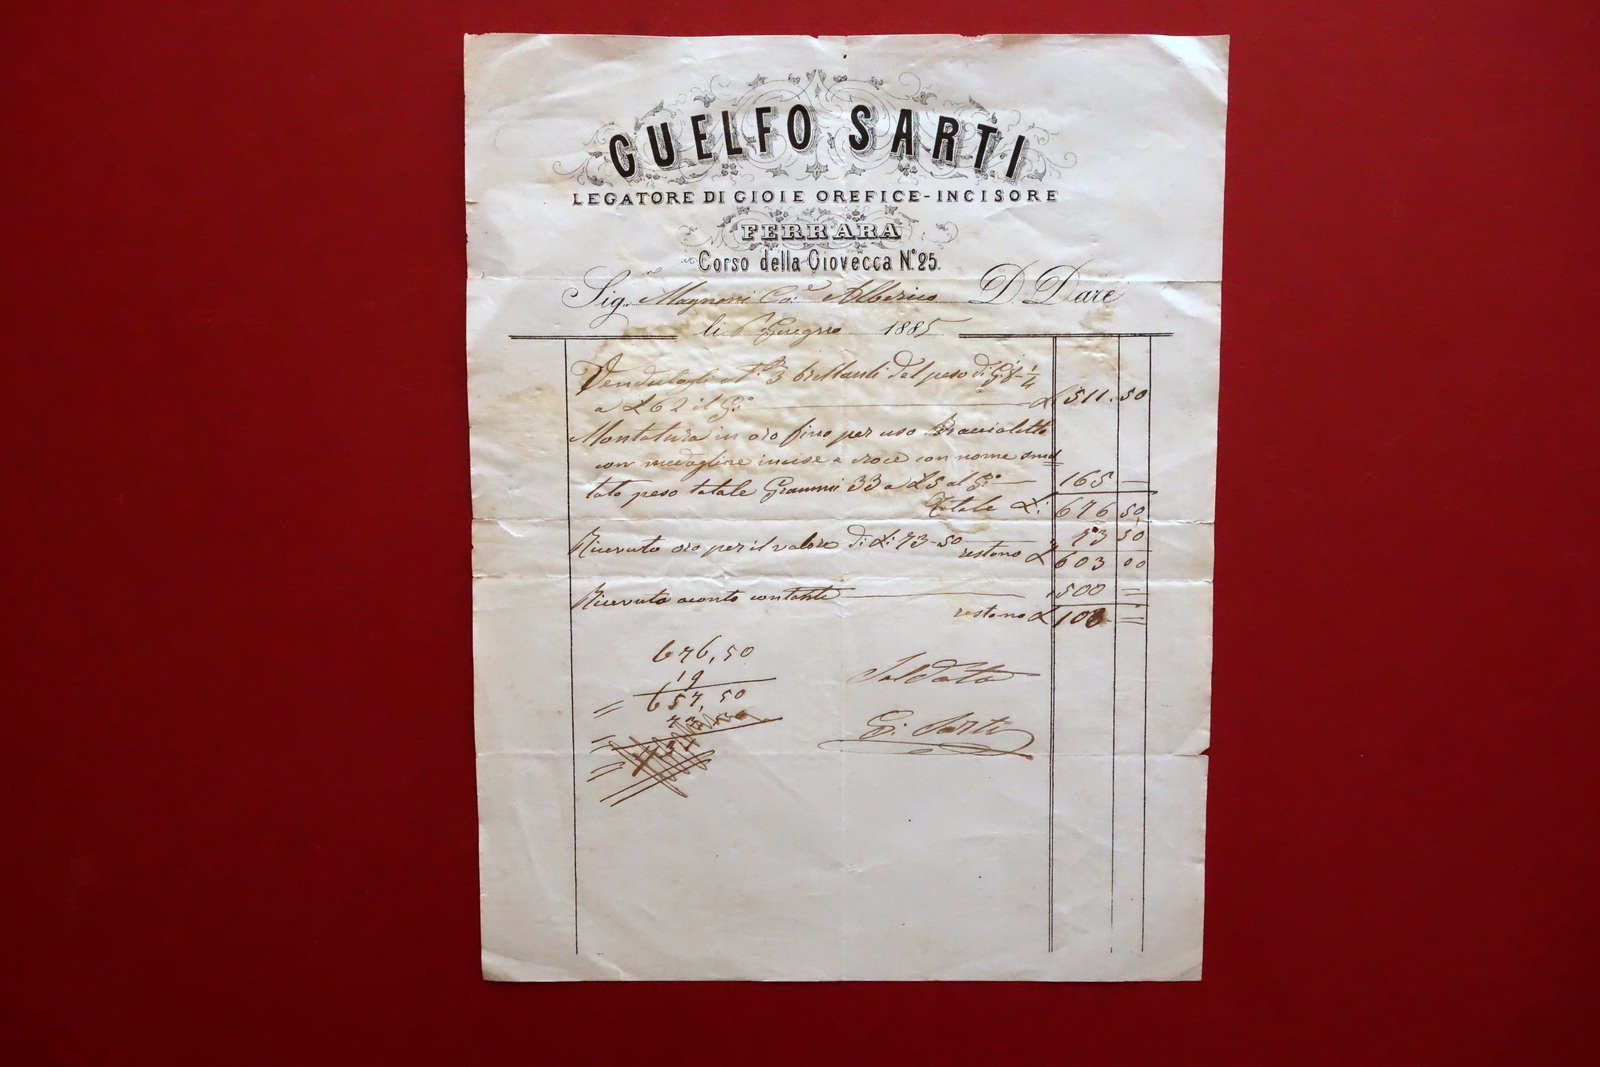 GUELFO SARTI
LEGATORE DI GIOIE OREFICE-INCISORE
FERRARA
Corso della Giovecca N.º 25.
Sig.r Magnoni Alberico D. Dare
li 1º Giugno 1885
Vendutogli N.º 3 brillanti del peso di G.i 8-1/4
a £ 62 il G.º £ 511.50
Montatura in oro fino per uso Braccialetto
con medaglione incise a croce con nome smal
tato peso totale Grammi 33 a £5 al G.º 165 —
Totale £: 676 50
Ricevuto oro per il valore di £: 73-50 73 50
restono £ 603 00
Ricevuto aconto contante 500 =
restono £ 10 =
676,50
19
= 657,50
Saldato
G. Sarti